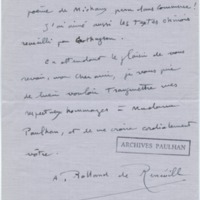 poème de Michaux pour Commerce !
J'ai aimé aussi les textes chinois
recueillis par
En attendant le plaisir de vous
revoir, mon cher ami, je vous prie
de bien vouloir transmettre mes
respectueux hommages à Madame
Paulhan, et de me croire cordialement
vôtre.
ARCHIVES PAULHAN
A. Rolland de Renéville